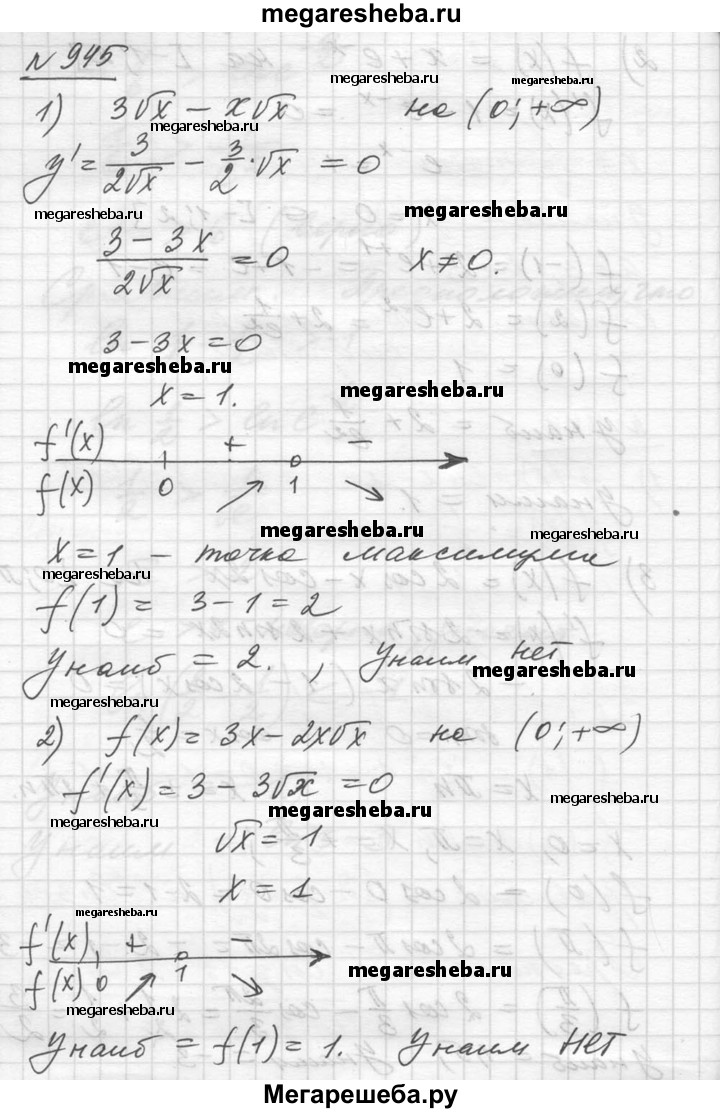 megaresheba.ru
№ 945
megaresheba.ru megaresheba.ru
1) 3√x − x√x на (0; +∞)
megaresheba.ru
y' = 3/(2√x) − 3/2·√x = 0
megaresheba.ru megaresheba.ru
(3 − 3x)/(2√x) = 0 x ≠ 0.
3 − 3x = 0
megaresheba.ru megaresheba.ru
x = 1.
f'(x) + −
f(x) 0 ↗ 1 ↘
megaresheba.ru megaresheba.ru
x = 1 − точка максимума
megaresheba.ru
f(1) = 3 − 1 = 2
Унаиб = 2. , Унаим нет
megaresheba.ru
megaresheba.ru
2) f(x) = 3x − 2x√x на (0; +∞)
f'(x) = 3 − 3√x = 0
megaresheba.ru megaresheba.ru
megaresheba.ru
√x = 1
x = 1
megaresheba.ru
f'(x) + −
megaresheba.ru
f(x) 0 ↗ 1 ↘
megaresheba.ru
Унаиб = f(1) = 1. Унаим нет
Мегарешеба.ру